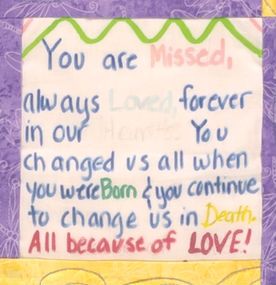 You are Missed,
always Loved, forever
in our Hearts You
changed us all when
you were Born & you continue
to change us in Death.
All because of LOVE!